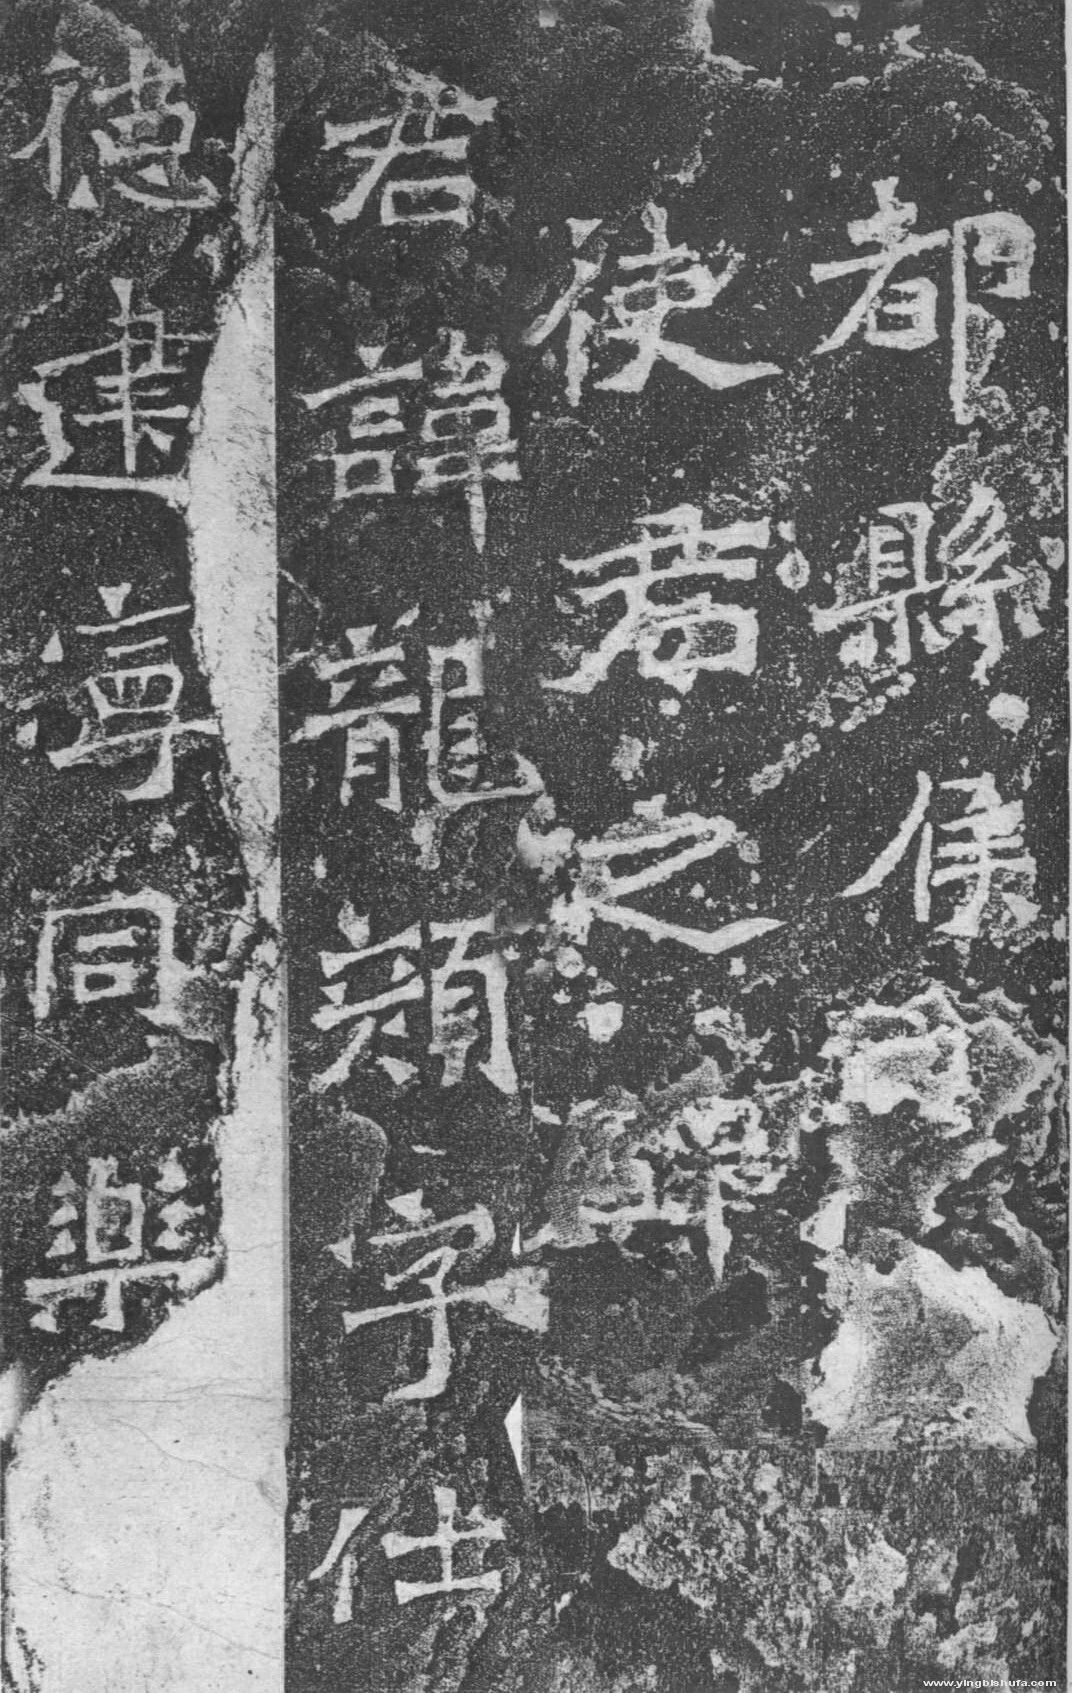 都縣侯
使君之碑
君諱龍顔字仕
德建寧同樂
www.yingbishufa.com